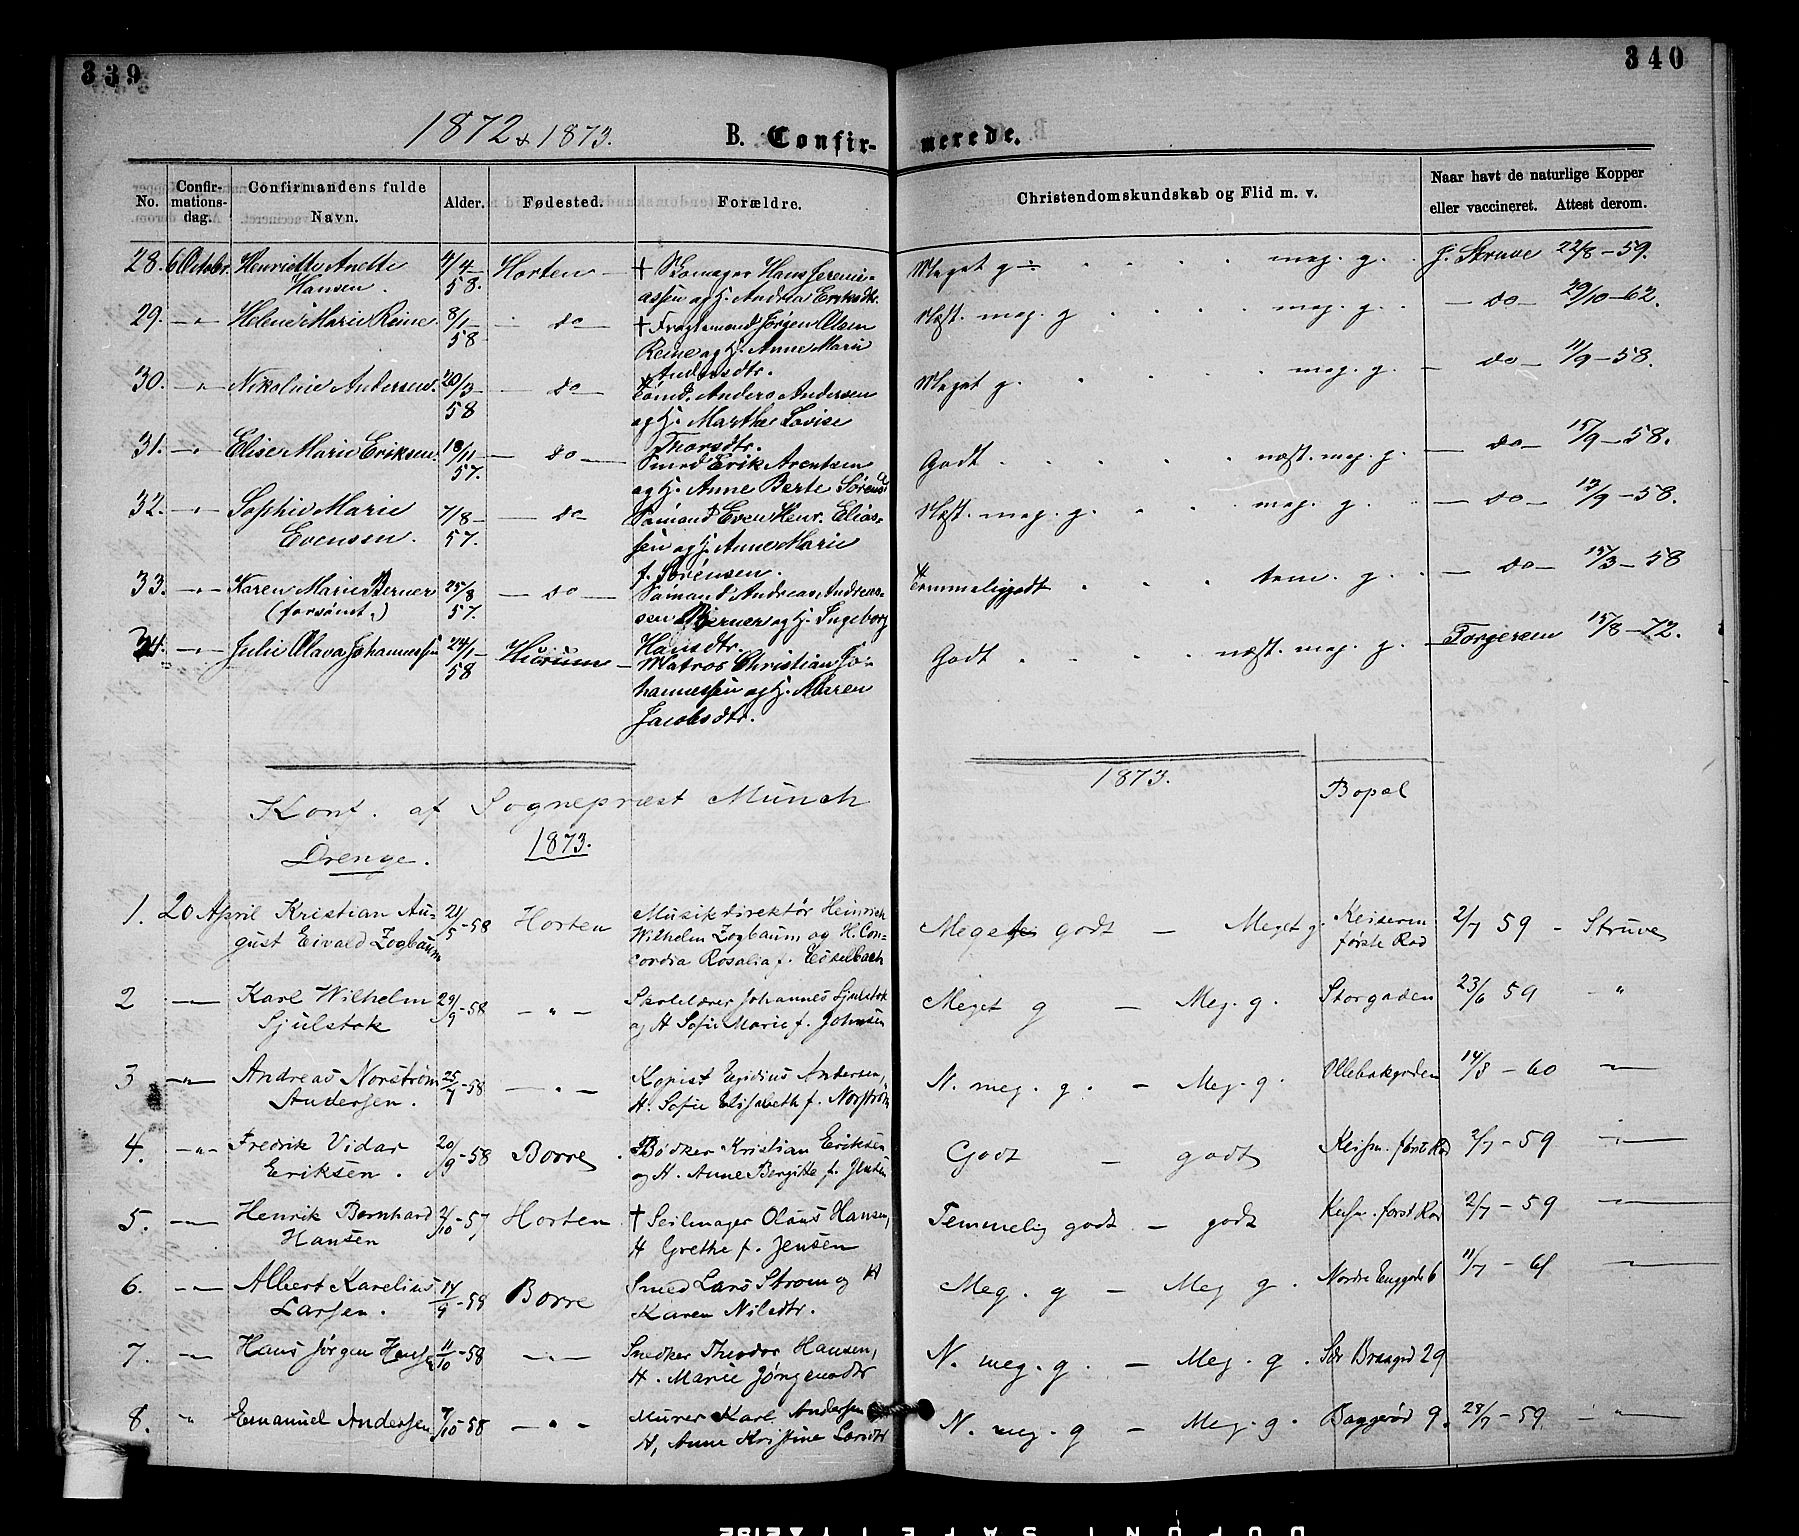 339
340
1872 & 1873.
B. Confir-
merede.
No.
Confir-
mations-
dag.
Confirmandens fulde
Navn.
Alder.
Fødested.
Forældre.
Christendomskundskab og Flid m. v.
Naar havt de naturlige Kopper
eller vaccineret. Attest derom.
28. 6 Octobr. Henriette Anette 4/4- Horten † Skomager Hans Jeremi- Meget g. meg. g. J. Struve 22/8-59.
Hansen. 58. assen og H. Andrea Eriksdtr.
29. -"- Helene Marie Reine 8/1- do † Fragtemand Jørgen Olsen Næst. meg. g meg. g. do 29/10-62.
58 Reine og H. Anne Marie
Andersdtr.
30. " Nikoline Andersen. 20/3- do Tømd. Anders Andersen Meget g. meg. g. do 11/9-58.
58 og H. Marthe Lovise
Thorsdtr.
31. " Elise Marie Eriksen. 18/11- do Smed Erik Arentsen Godt næst. meg. g. do 15/9-58.
57. og H. Anne Berte Sørensd
32. " Sophie Marie 7/8- do Sømand Even Henr. Elias- Næst. meg. g. meg. g. do 13/9-58.
Evensen. 57. sen og H. Anne Marie
f. Sørensen.
33. -"- Karen Marie Berner 25/8 do Sømand Andreas Andreas- Temmeliggodt tem. g. do 15/3-58
(forsømt.) 57. sen Berner og H. Ingeborg
Hansdtr.
34. -"- Julie Olava Johannessen 24/1- Hurum Matros Christian Jo- Godt næst. meg. g. Torgersen 15/8-72.
58 hannessen og H. Maren
Jacobsdtr.
Konf. af Sognepræst Münch
1873.
Drenge.
1873.
Bopæl
1. 20 April Kristian Au- 21/5-58 Horten Musikdirektør Heinrich Meget godt - Meget g. Keiseren 2/7 59 - Struve
gust Eivald Zogbaum Wilhelm Zogbaum og H. Con- første Rad
cordia Rosalia f.
2 -"- Karl Wilhelm 29/9-58 -"- Skolelærer Johannes Sjulstok Meget g - Meg. g. Storgaden 23/6 59 - "
Sjulstok og H Sofie Marie f. Johnsen
3 -"- Andreas Norstrøm 25/7-58 -"- Kopist Egidius Andersen, N. meg. g. - Meg. g. Vllebakgaden 14/8-60
Andersen. H. Sofie Elisabeth f. Norstrøm
4. -"- Fredrik Vidar 20/9-58 Borre. Bødker Kristian Eriksen Godt - godt Keisn. først Rad 2/7-59
Eriksen. og H. Anne Bergitte f. Jensen
5. -"- Henrik Bernhard 2/10-57 Horten † Seilmager Olaus Hansen, Temmelig godt - godt Keisn. først Rad 2/7-59
Hansen H Grethe f. Jensen
6. -"- Albert Karelius 14/9-58 Borre Smed Lars Strøm og H Meg. g - Meg g. Nordre Enggade 6 11/7-61
Larsen. Karen Nilsdtr.
7. -"- Hans Jørgen Hansen 11/10-58 -"- Snedker Theodor Hansen, N. meg. g. - Meg. g. Sdr Braagd 29
H. Marie Jørgensdtr
8. " Emanuel Andersen 7/10-58 -"- Murer Karl Andersen N. meg. g - Meg. g. Baggerød 9. 28/7-59 - "
H, Anne Kristine Larsdtr